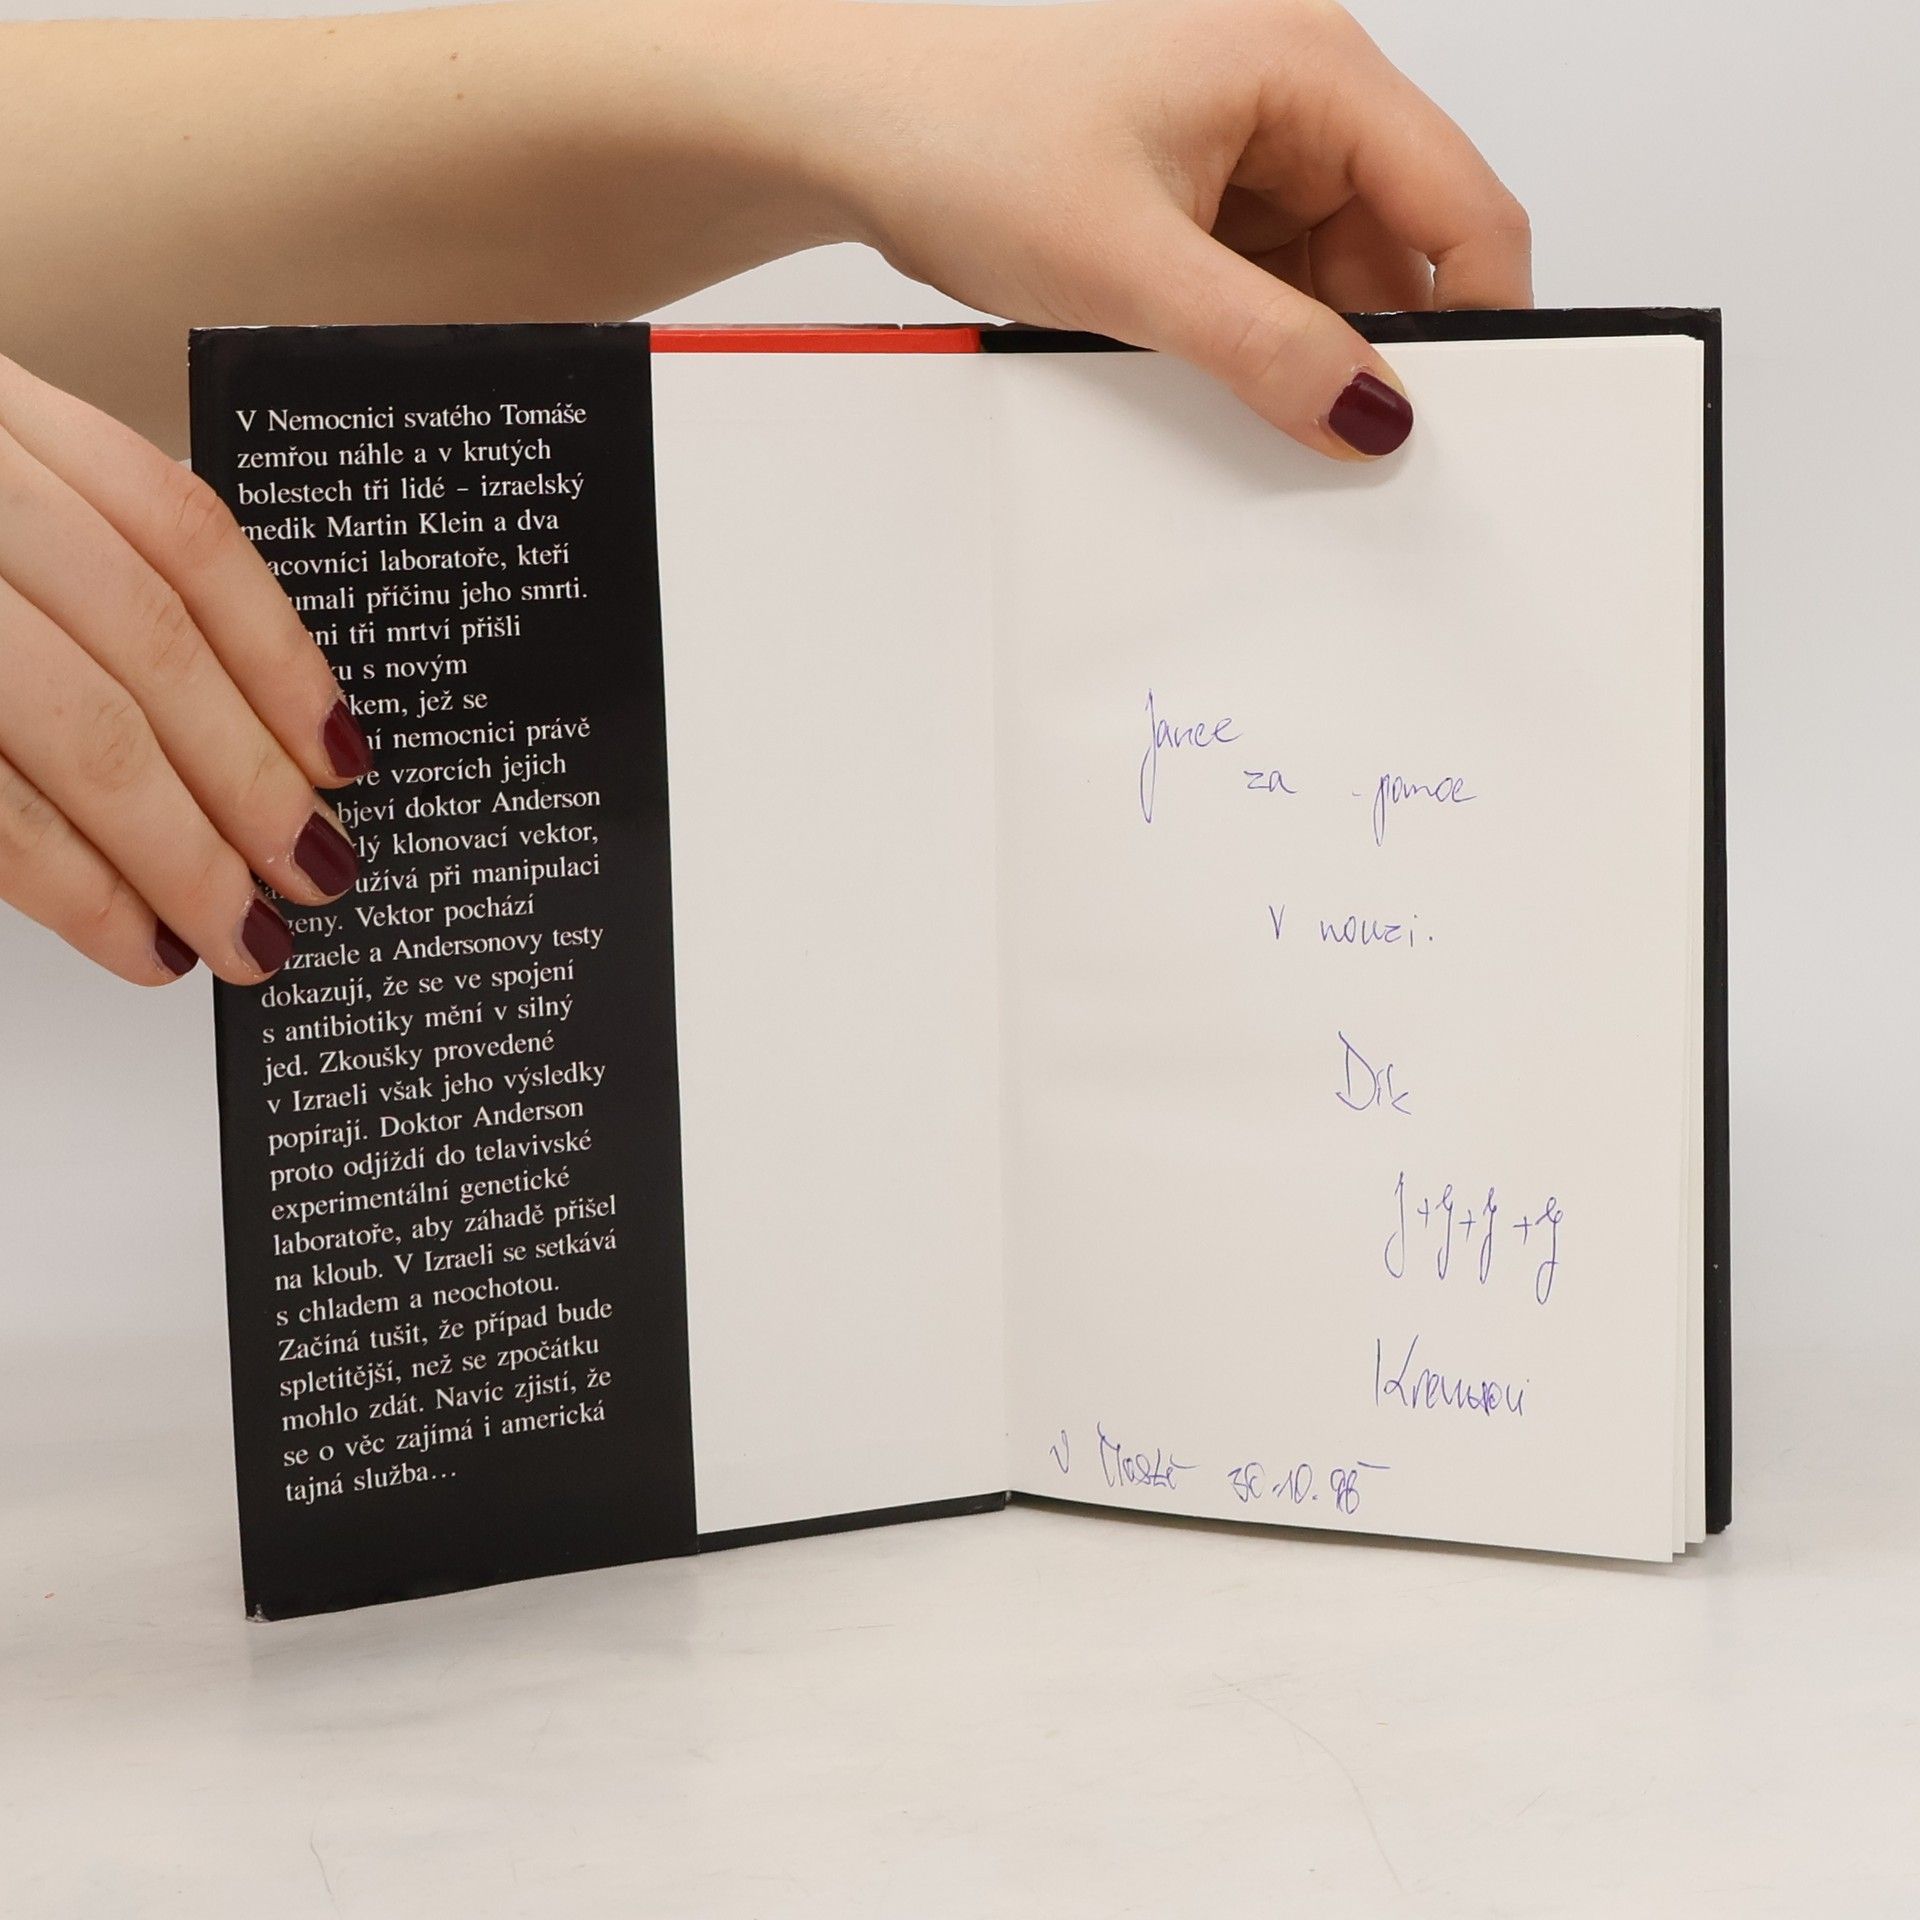 V Nemocnici svatého Tomáše
zemřou náhle a v krutých
bolestech tři lidé – izraelský
medik Martin Klein a dva
acovníci laboratoře, kteří
umali příčinu jeho smrti.
ni tři mrtví přišli
ku s novým
kem, jež se
ní nemocnici právě
ve vzorcích jejich
bjeví doktor Anderson
lý klonovací vektor,
užívá při manipulaci
geny. Vektor pochází
Izraele a Andersonovy testy
dokazují, že se ve spojení
s antibiotiky mění v silný
jed. Zkoušky provedené
v Izraeli však jeho výsledky
popírají. Doktor Anderson
proto odjíždí do telavivské
experimentální genetické
laboratoře, aby záhadě přišel
na kloub. V Izraeli se setkává
s chladem a neochotou.
Začíná tušit, že případ bude
spletitější, než se zpočátku
mohlo zdát. Navíc zjistí, že
se o věc zajímá i americká
tajná služba…
Jance
za pomoc
v nouzi.
Dík
J+J+J+J
v Mostě 30.10.